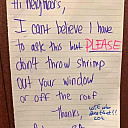 Hi neighbors,
I can't believe I have
to ask this but PLEASE
don't throw shrimp
out your window
or off the roof
Thanks,